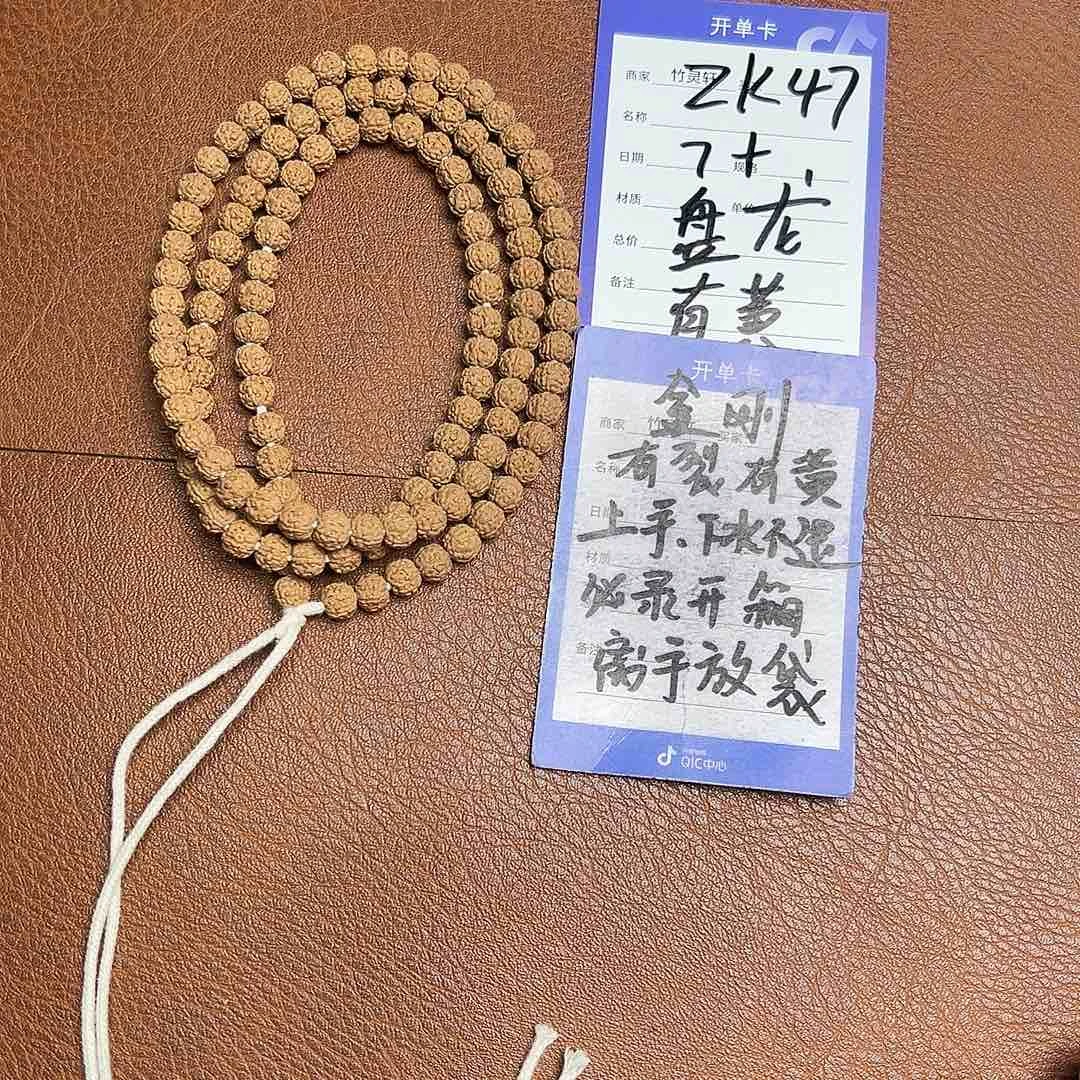 开单卡
商家 竹灵轩 ZK47
名称
日期 7+. 规格
材质 盘龙 单价
总价
备注 有黄
开单卡
金刚
商家 竹
名称 有裂有黄
上手、下水不退
材质
必录开箱
备注 离手放袋
QIC中心